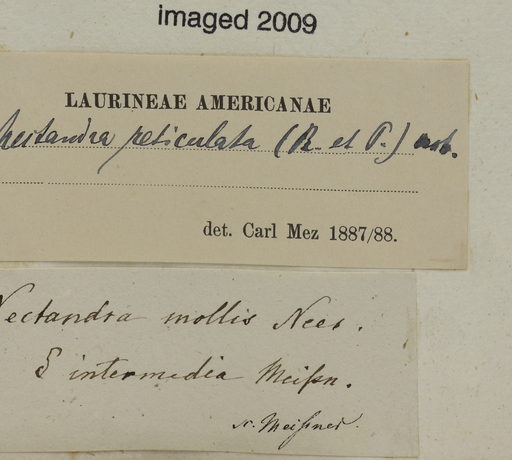 imaged 2009
LAURINEAE AMERICANAE
Nectandra reticulata (R. et P.)
det. Carl Mez 1887/88.
Nectandra mollis Nees.
intermedia Meißn.
Meißner